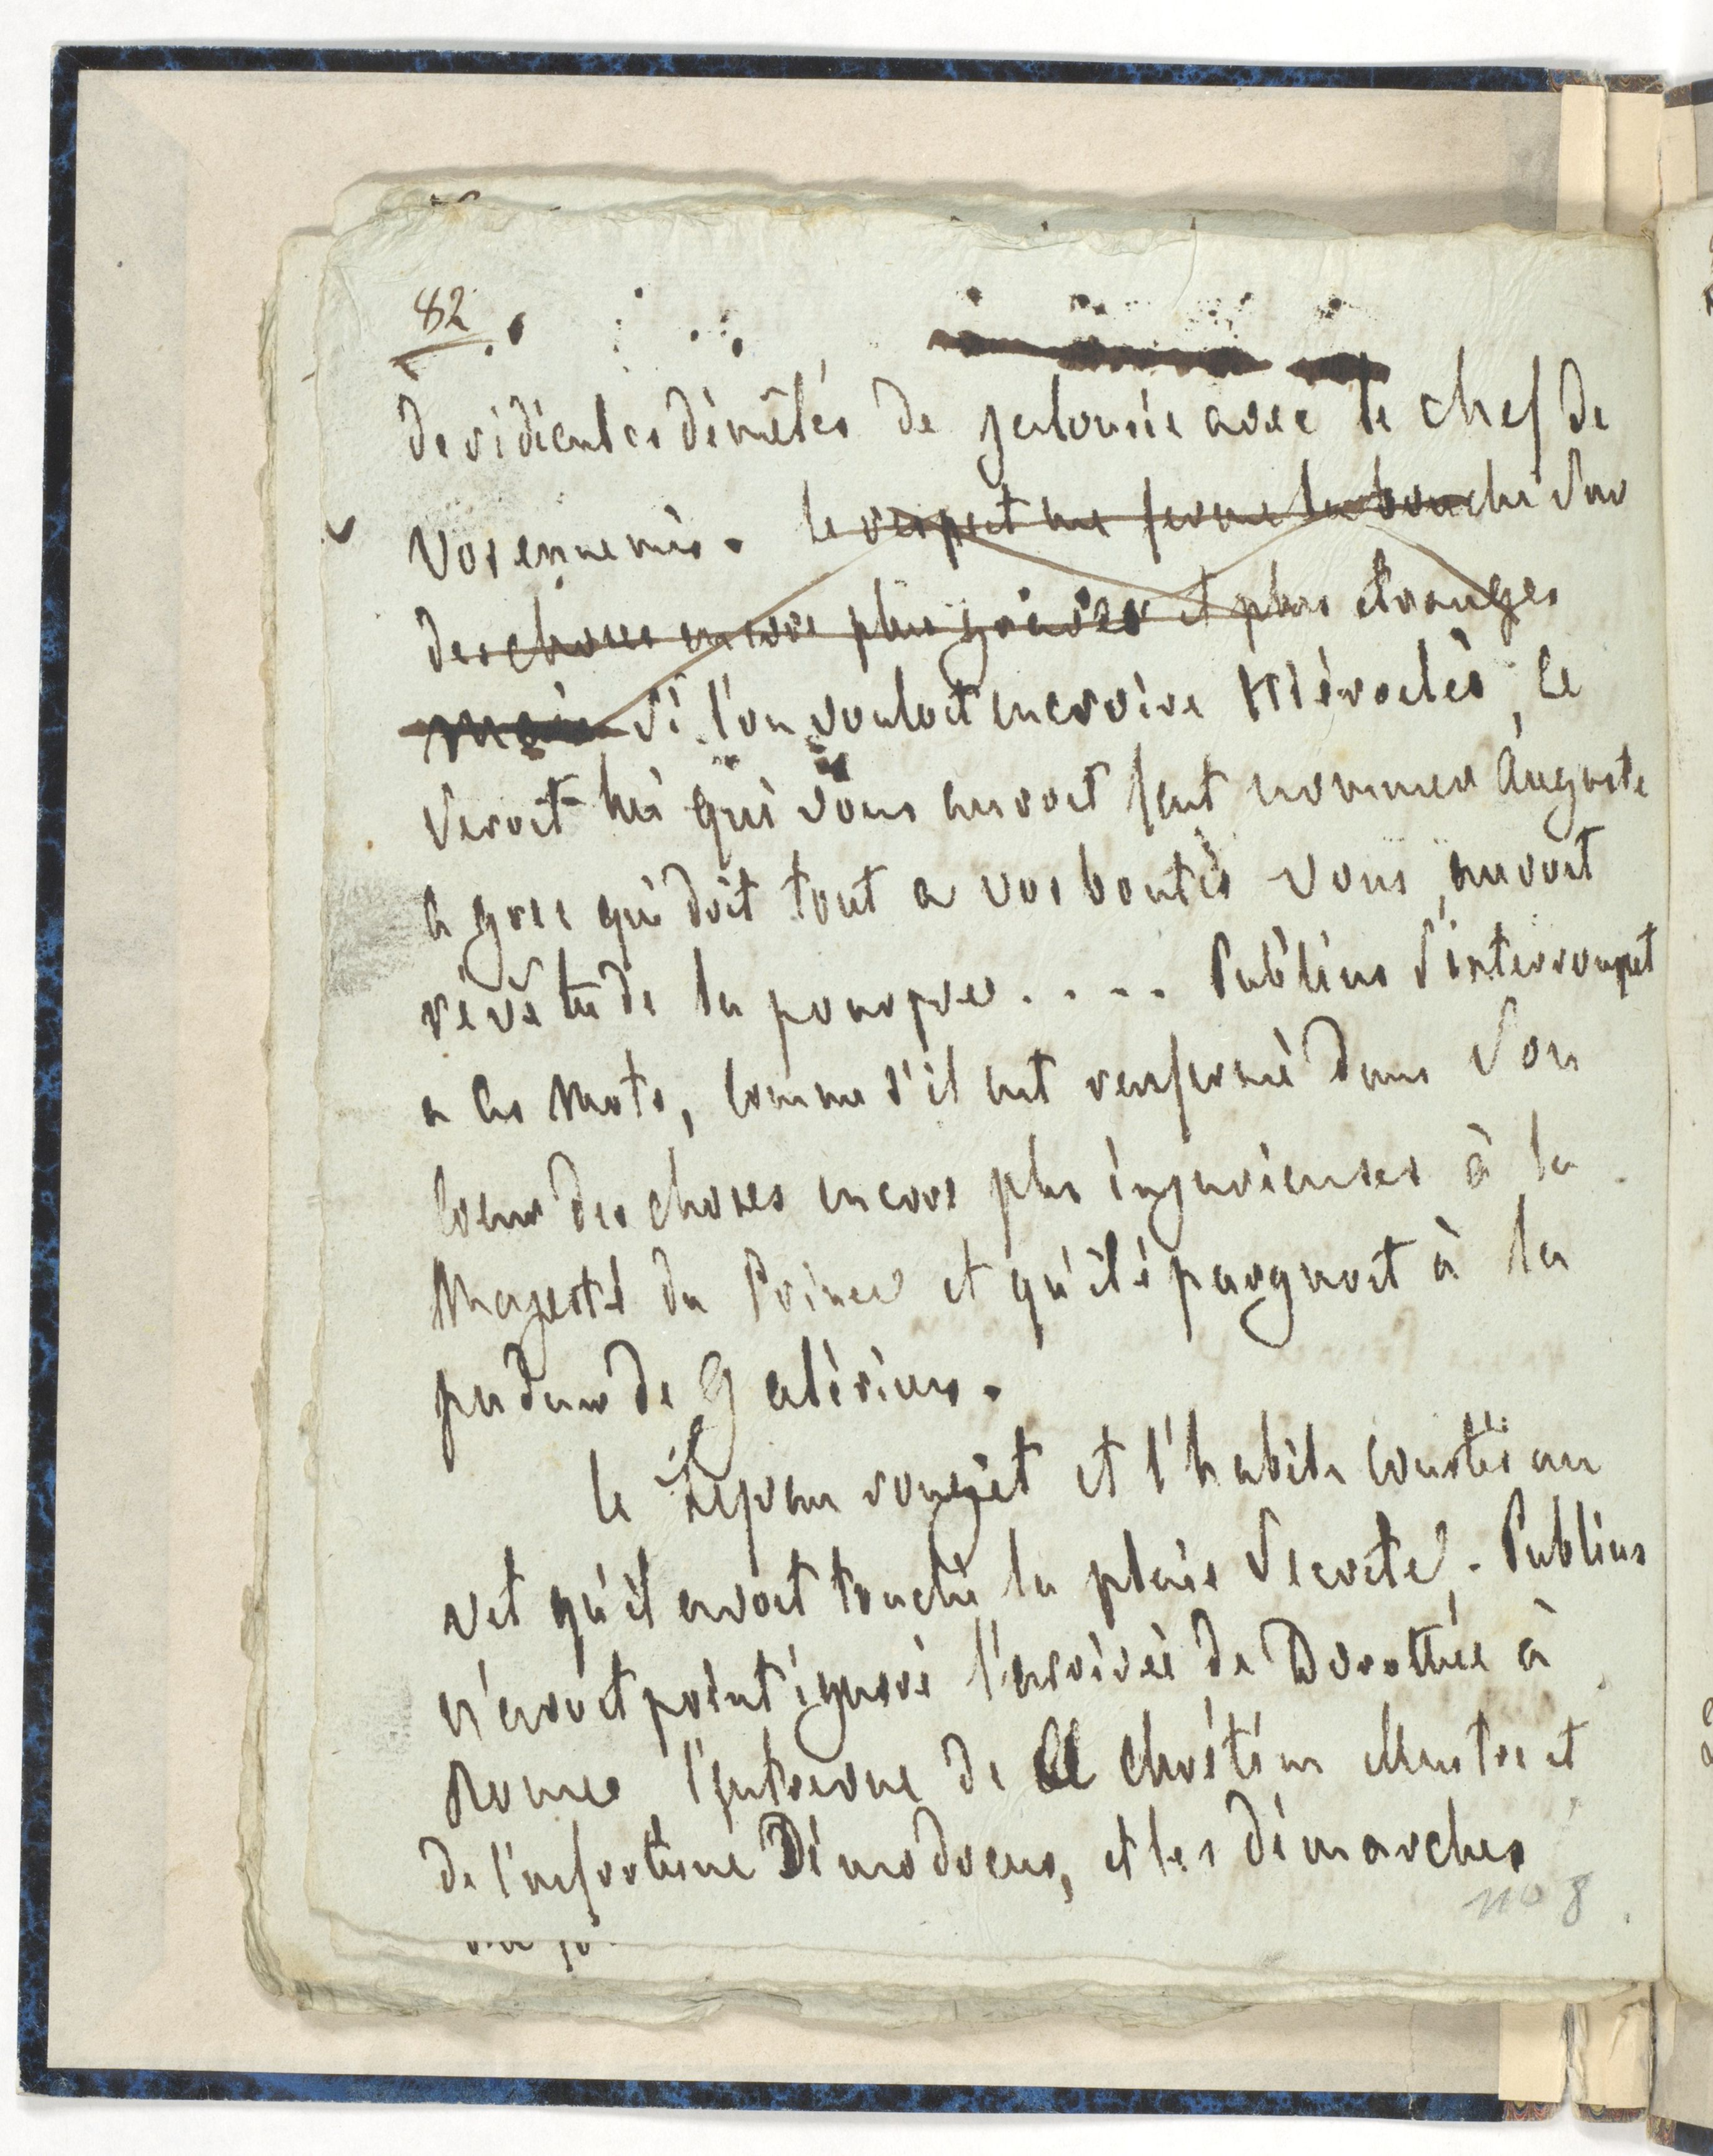 82
de ridicules démêlés de jalousie avec le chef de
vos ennemis. le respect me ferme la bouche sur
des choses encore plus graves et plus étranges
mais si l'on vouloit en croire Hiéroclès, ce
seroit lui qui vous auroit fait nommer Auguste
ce grec qui doit tout a vos bontés vous auroit
révêtu de la pourpre..... Publius s'interrompit
a ces mots, comme s'il eut renfermé dans son
coeur des choses encore plus injurieuses à la
Majesté du Prince et qu'il épargnoit à la
pudeur de Galérius.
le rougit et l'habile courtisan
vit qu'il avoit touché la plaie secrete. Publius
n'avoit point ignoré l'arrivée de Dorothée à
Rome l'entrevue de ce chrétien illustre et
de l'infortuné Démodocus, et les démarches
no 8